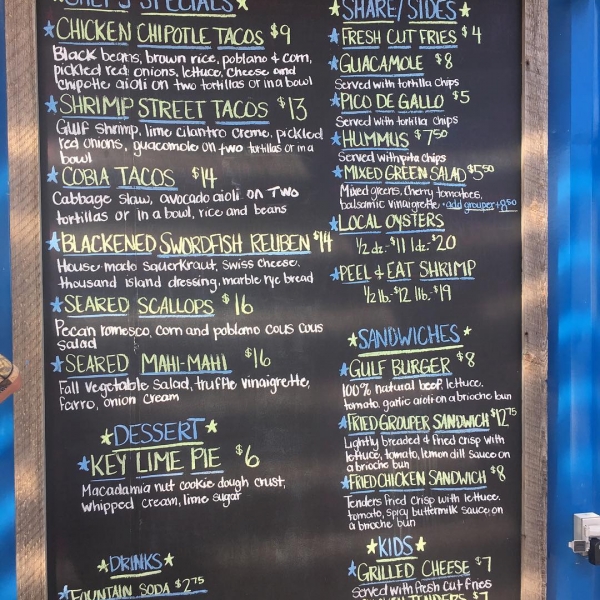 CHEF'S SPECIALS
CHICKEN CHIPOTLE TACOS $9
Black beans, brown rice, poblano & corn,
pickled red onions, lettuce, cheese and
chipotle aioli on two tortillas or in a bowl
SHRIMP STREET TACOS $13
Gulf shrimp, lime cilantro creme, pickled
red onions, guacamole on two tortillas or in a
bowl
COBIA TACOS $14
Cabbage slaw, avocado aioli on two
tortillas or in a bowl, rice and beans
BLACKENED SWORDFISH REUBEN $14
House made sauerkraut, swiss cheese,
thousand island dressing, marble rye bread
SEARED SCALLOPS $16
Pecan romesco, corn and poblano cous cous
salad
SEARED MAHI-MAHI $16
Fall vegetable salad, truffle vinaigrette,
farro, onion cream
DESSERT
KEY LIME PIE $6
Macadamia nut cookie dough crust,
whipped cream, lime sugar
DRINKS
FOUNTAIN SODA $2.75
SHARE/SIDES
FRESH CUT FRIES $4
GUACAMOLE $8
Served with tortilla chips
PICO DE GALLO $5
Served with tortilla chips
HUMMUS $7.50
Served with pita chips
MIXED GREEN SALAD $5.50
Mixed greens, cherry tomatoes,
balsamic vinaigrette • add grouper + 8.50
LOCAL OYSTERS
1/2 dz. $11 1dz. $20
PEEL & EAT SHRIMP
1/2 lb. $12 1lb. $19
SANDWICHES
GULF BURGER $8
100% natural beef, lettuce,
tomato, garlic aioli on a brioche bun
FRIED GROUPER SANDWICH $12.75
Lightly breaded & fried crisp with
lettuce, tomato, lemon dill sauce on
a brioche bun
FRIED CHICKEN SANDWICH $8
Tenders fried crisp with lettuce,
tomato, spicy buttermilk sauce on
a brioche bun
KIDS
GRILLED CHEESE $7
Served with fresh cut fries
CHICKEN TENDERS $7